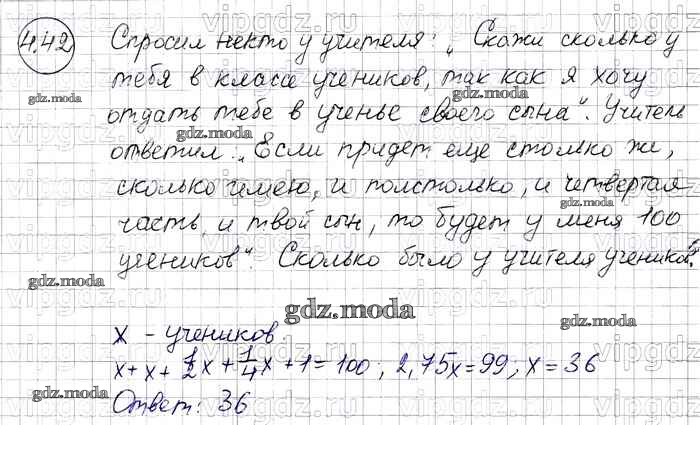 4.42 Спросил некто у учителя: „Скажи сколько у
тебя в классе учеников, так как я хочу
отдать тебе в ученье своего сына“. Учитель
ответил: „Если придет еще столько же,
сколько имею, и полстолько, и четвертая
часть, и твой сын, то будет у меня 100
учеников“. Сколько было у учителя учеников?
gdz.moda
x - учеников
x + x + 1/2 x + 1/4 x + 1 = 100; 2,75x = 99; x = 36
Ответ: 36